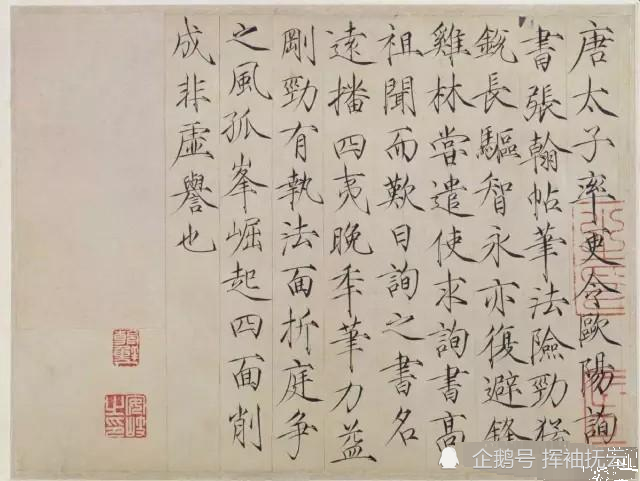 唐太子率更令歐陽詢
書張翰帖筆法險勁猛
銳長驅智永亦復避鋒
雞林嘗遣使求詢書高
祖聞而歎曰詢之書名
遠播四夷晚年筆力益
剛勁有執法面折庭爭
之風孤峯崛起四面削
成非虛譽也
企鹅号 挥袖抚云